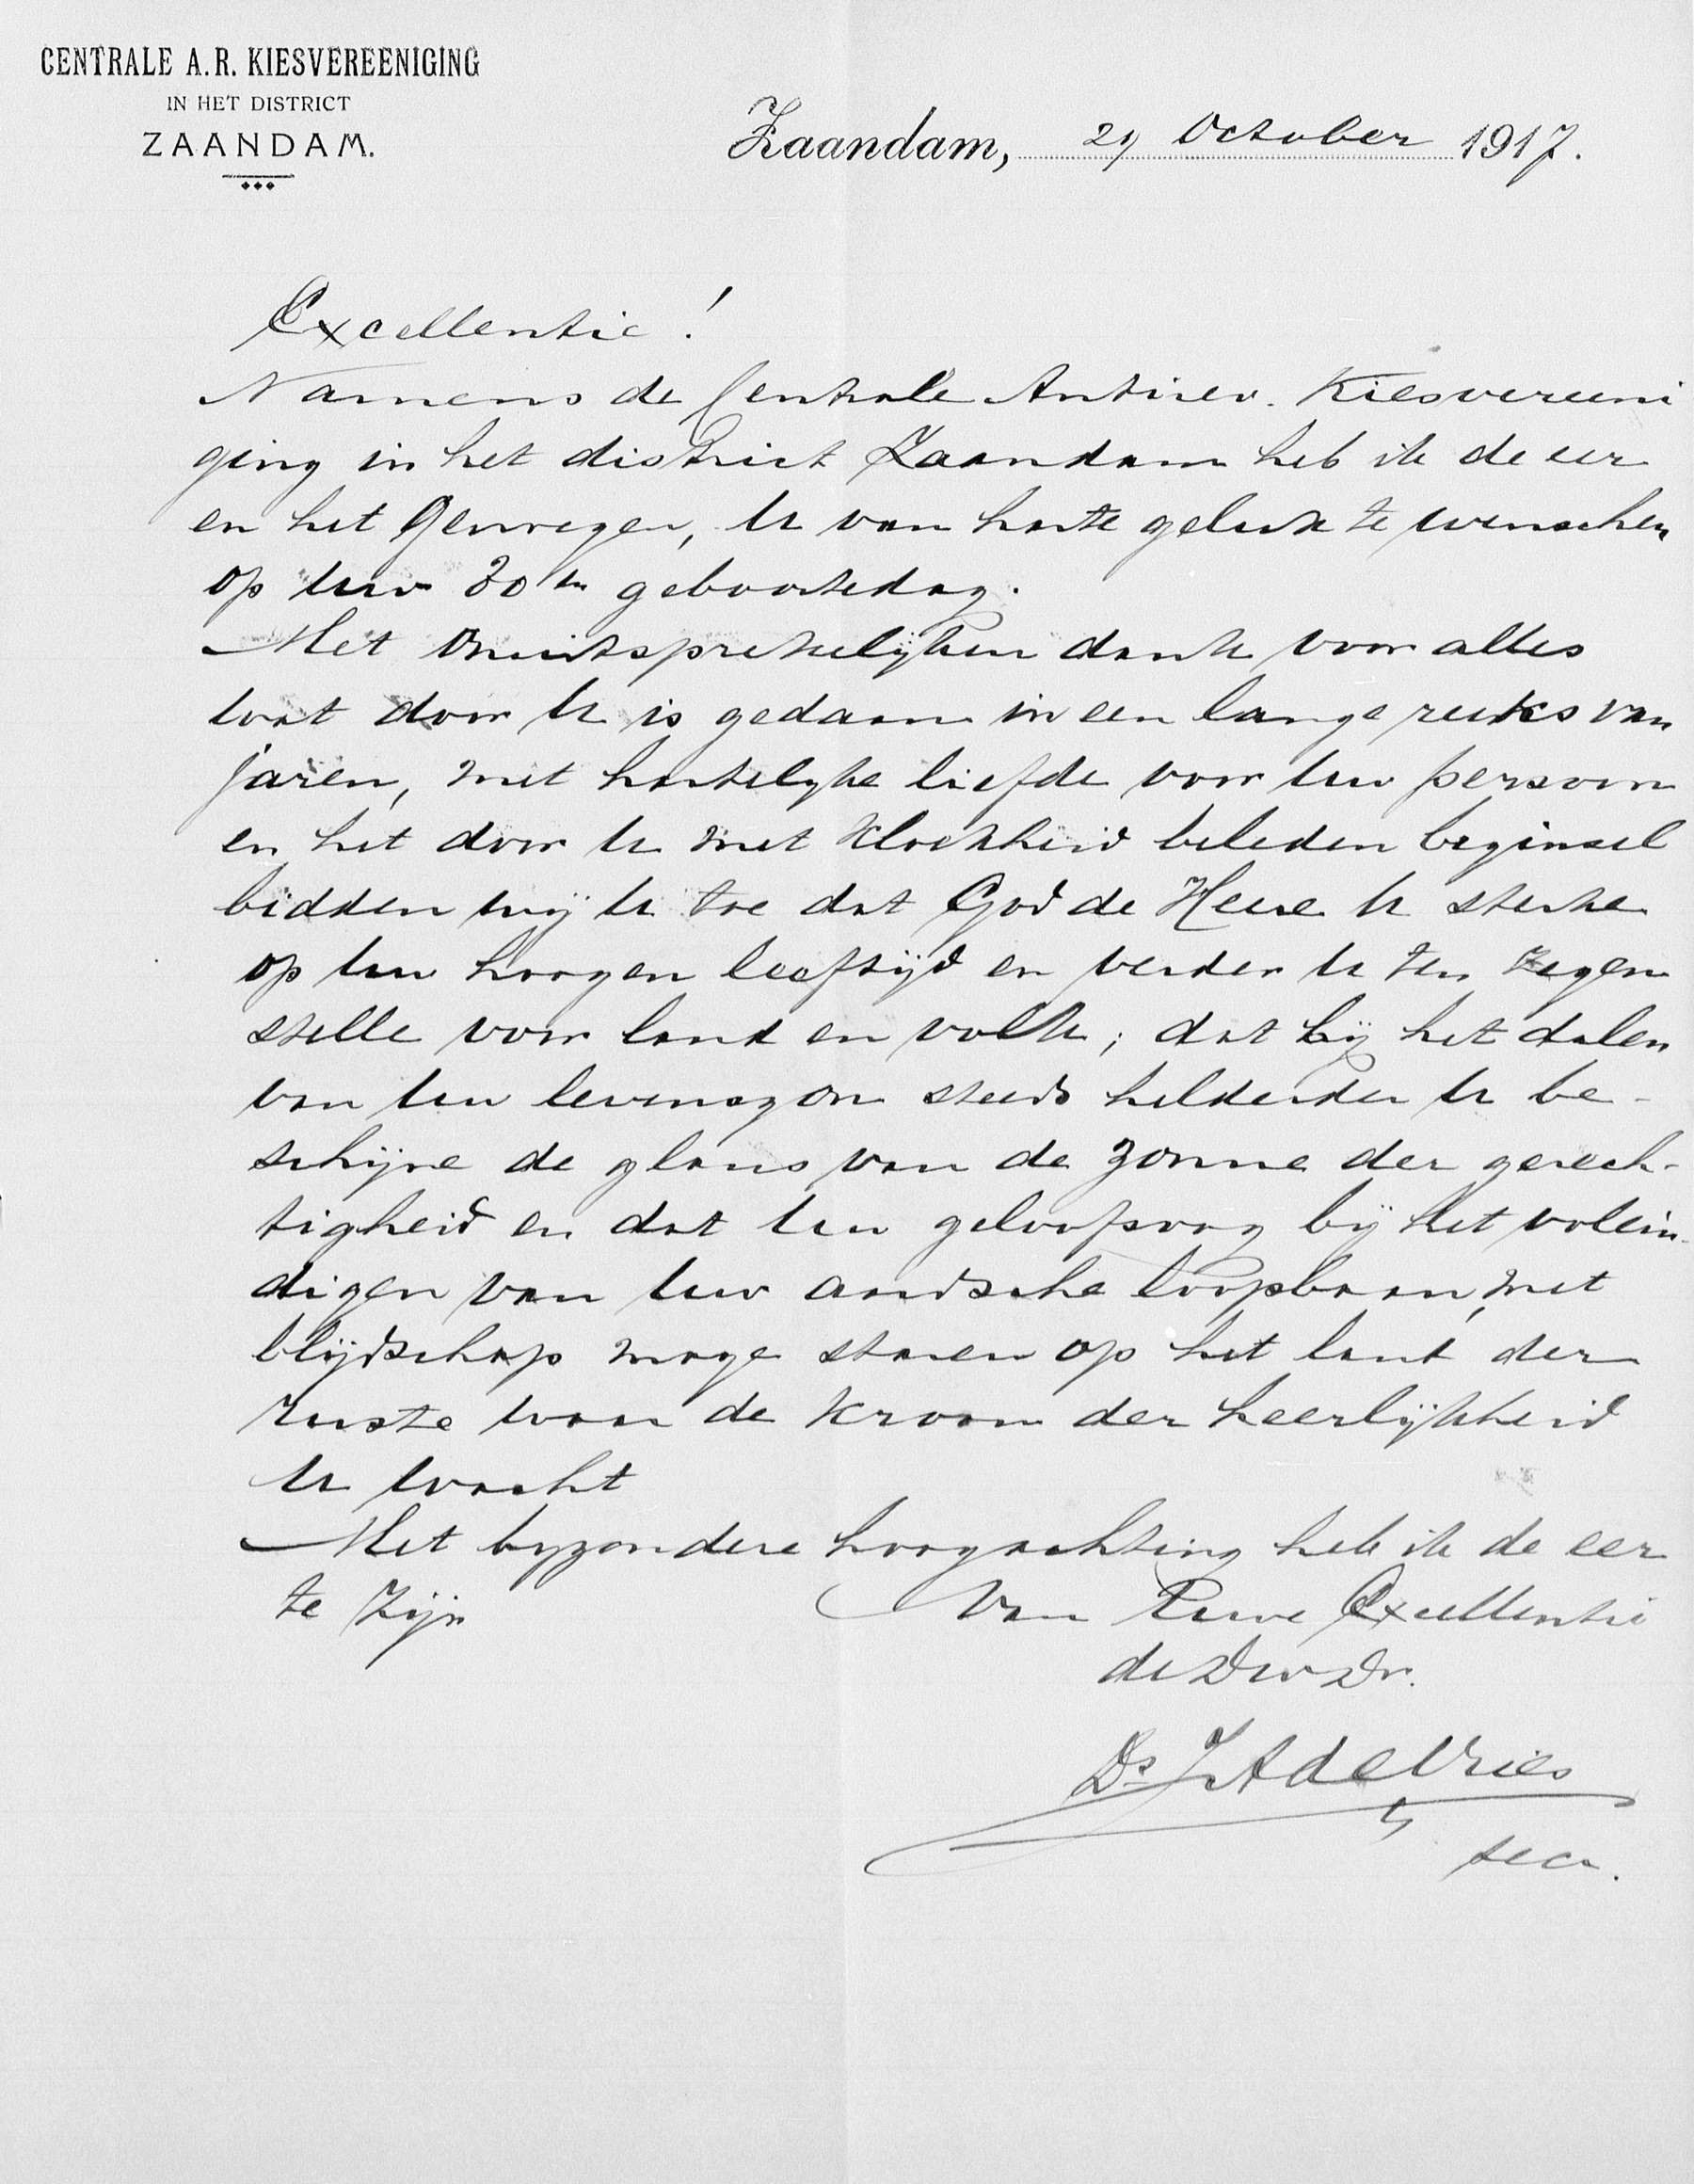 CENTRALE A.R. KIESVEREENIGING
IN HET DISTRICT
ZAANDAM.
Zaandam, 29 October 1917.
Excellentie!
Namens de Centrale Antirev. Kiesvereeni
ging in het district Zaandam heb ik de eer
en het genoegen, U van harte geluk te wenschen
op Uw 80sten geboortedag.
Met onuitsprekelijken dank voor alles
wat door U is gedaan in een lange reeks van
jaren, met hartelijke liefde voor Uw persoon
en het door U met kloekheid beleden beginsel
bidden wij U toe dat God de Heere U sterke
op Uw hoogen leeftijd en verder U ten zegen
stelle voor land en volk; dat bij het dalen
van Uw levenszon steeds helderder U be-
schijne de glans van de Zonne der gerech-
tigheid en dat Uw geloofsoog bij het volein-
digen van Uw aardsche loopbaan, met
blijdschap moge staren op het land der
ruste waar de kroon der heerlijkheid
U wacht
Met byzondere hoogachting heb ik de eer
te zijn Van Uwe Excellentie
de Dw Dr.
Ds. J A de Vries
secr.